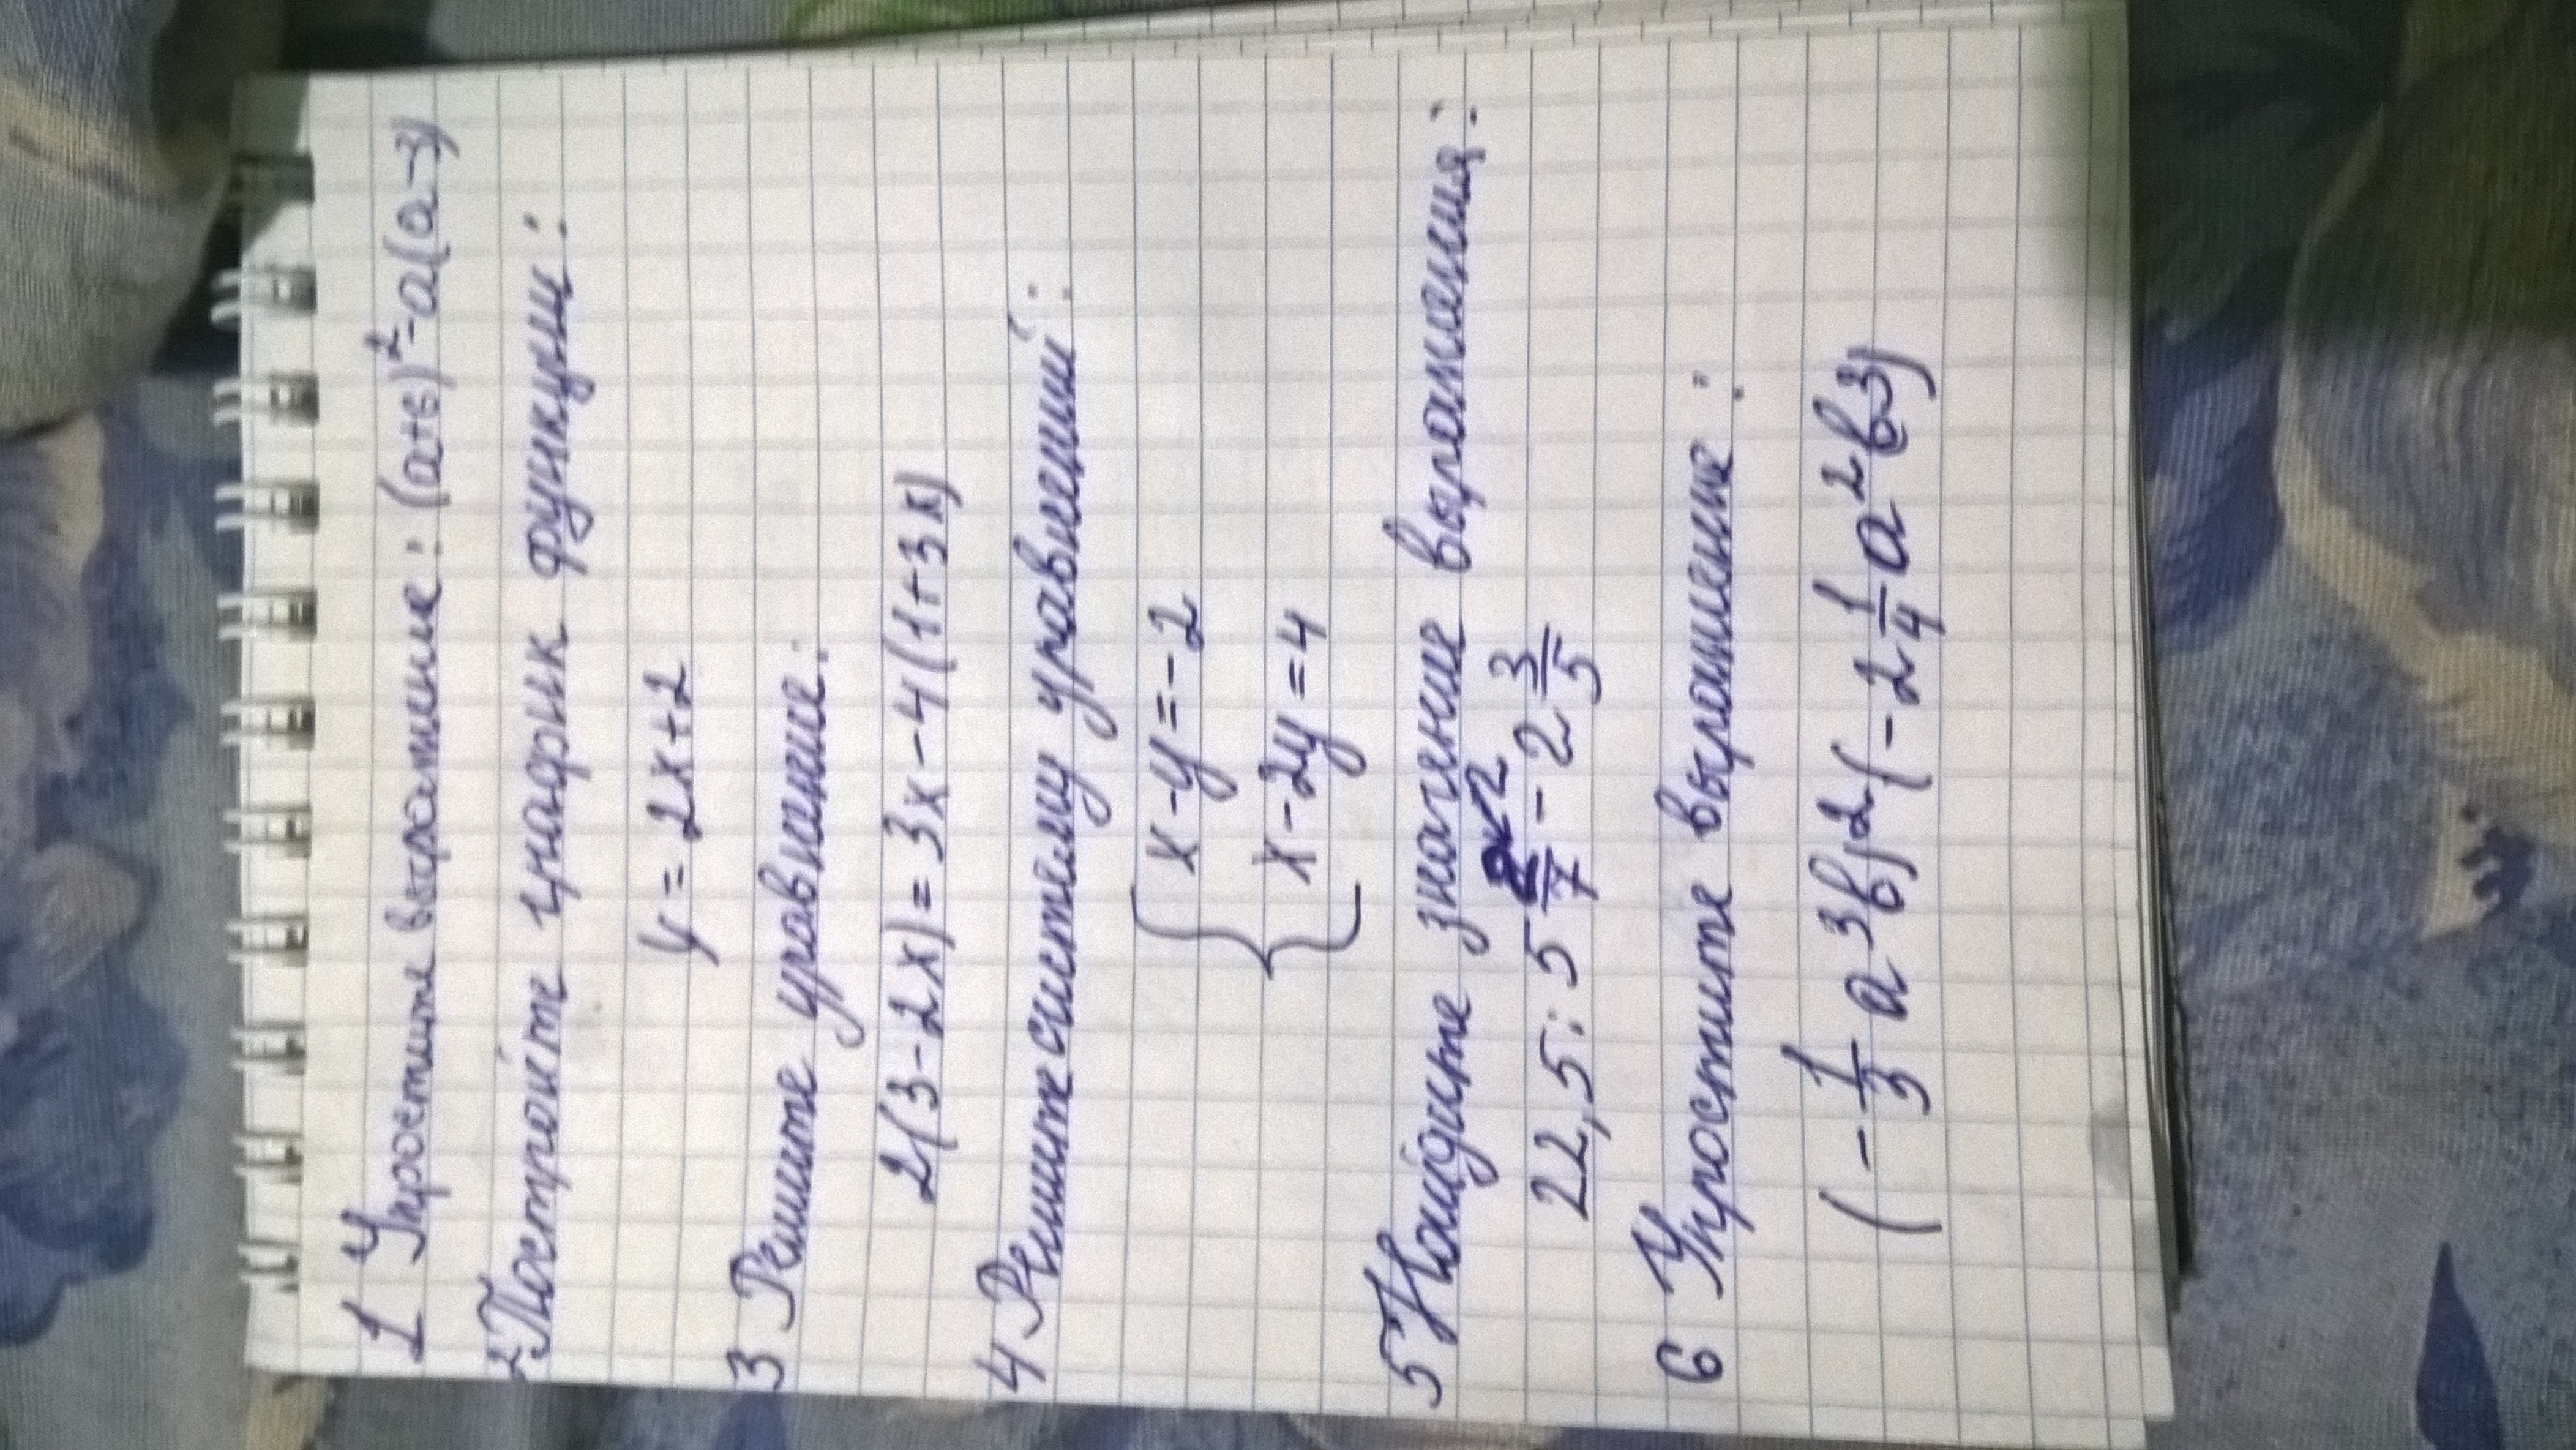 1 Упростите выражение: (а+в)²-а(а-3)
2 Постройте график функции:
y = 2x+2
3 Решите уравнение:
2(3-2x)=3x-4(1+3x)
4 Решите систему уравнений:
{ x-y=-2
x-2y=4
5 Найдите значение выражения:
22,5 : 5 /7 - 2 3/5
6 Упростите выражение:
(-1/3 a³b)²(-2 1/4 a²b³)